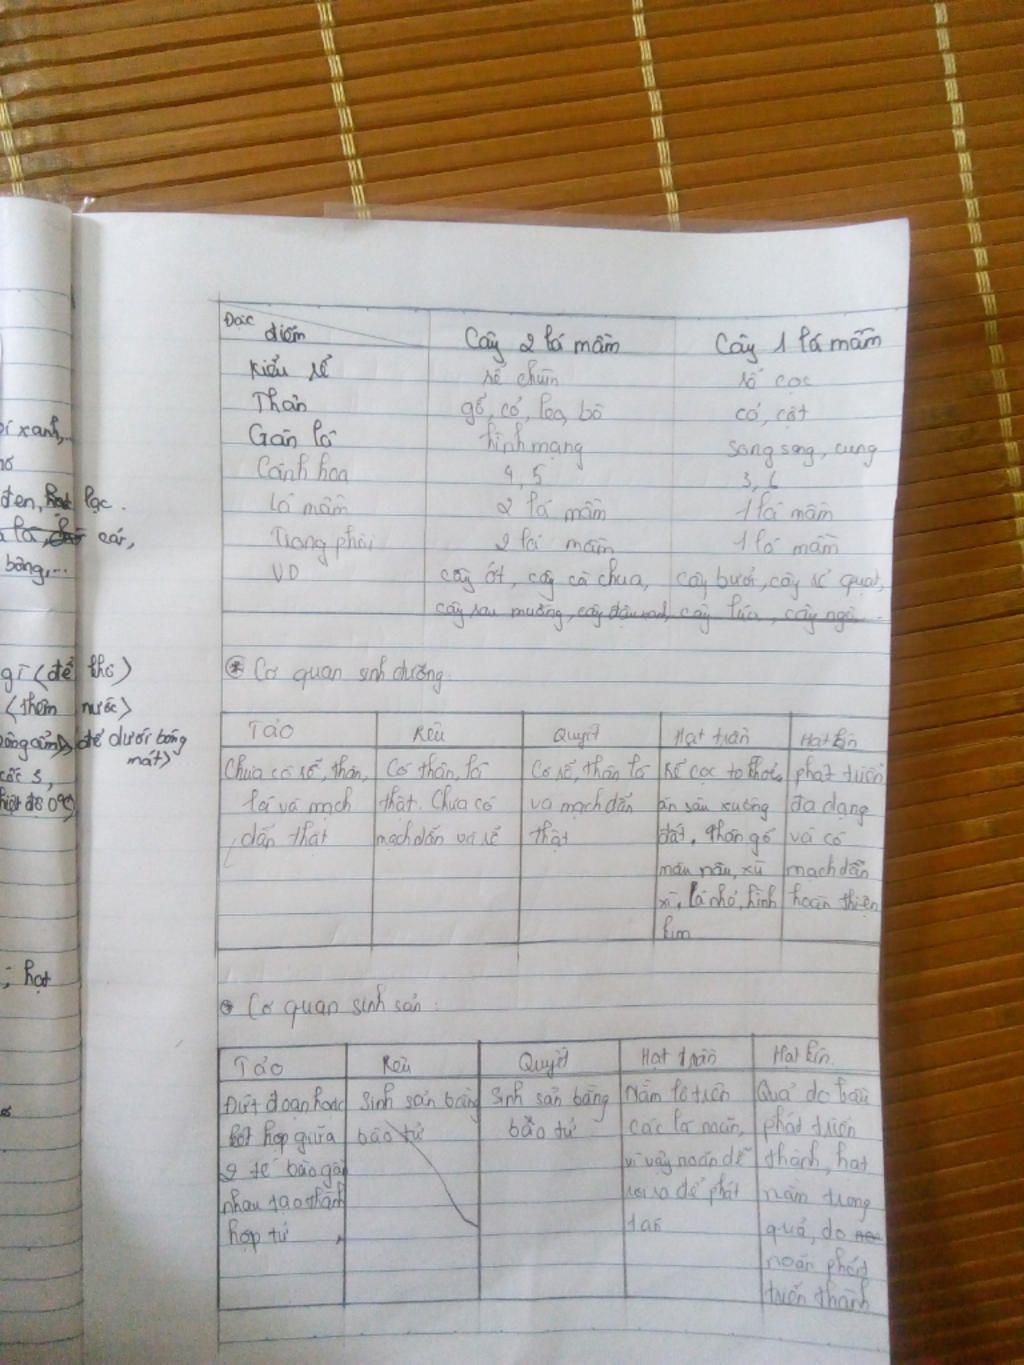 Đặc điểm Cây 2 lá mầm Cây 1 lá mầm
Kiểu rễ rễ chùm rễ cọc
Thân gỗ, cỏ, leo, bò cỏ, cột
Gân lá hình mạng song song, cung
Cánh hoa 4, 5 3, 6
Lá mầm 2 lá mầm 1 lá mầm
Trong phôi 2 lá mầm 1 lá mầm
VD cây ớt, cây cà chua, cây bưởi, cây rẻ quạt,
cây rau muống, cây đậu xanh cây lúa, cây ngô
í xanh,..
đen, hạt lạc.
lá, cải,
bông,...
gì (để khô)
(thêm nước)
để dưới bóng
mát)
cốc 3,
nhiệt độ 0°C)
; hạt
* Cơ quan sinh dưỡng.
Tảo Rêu Quyết Hạt trần Hạt kín
Chưa có rễ, thân, Có thân, lá Có rễ, thân lá Rễ cọc to khoẻ, phát triển
lá và mạch thật. Chưa có và mạch dẫn ăn sâu xuống đa dạng
dẫn thật mạch dẫn và rễ thật đất, thân gỗ và có
màu nâu, xù mạch dẫn
xì, lá nhỏ, hình hoàn thiện
kim
* Cơ quan sinh sản:
Tảo Rêu Quyết Hạt trần Hạt kín.
Đứt đoạn hoặc Sinh sản bằng Sinh sản bằng Nằm lộ trên Quả do bầu
kết hợp giữa bào tử bào tử các lá noãn, phát triển
2 tế bào gần vì vậy noãn dễ thành, hạt
nhau tạo thành rơi ra để phát nằm trong
hợp tử tán quả, do
noãn phát
triển thành